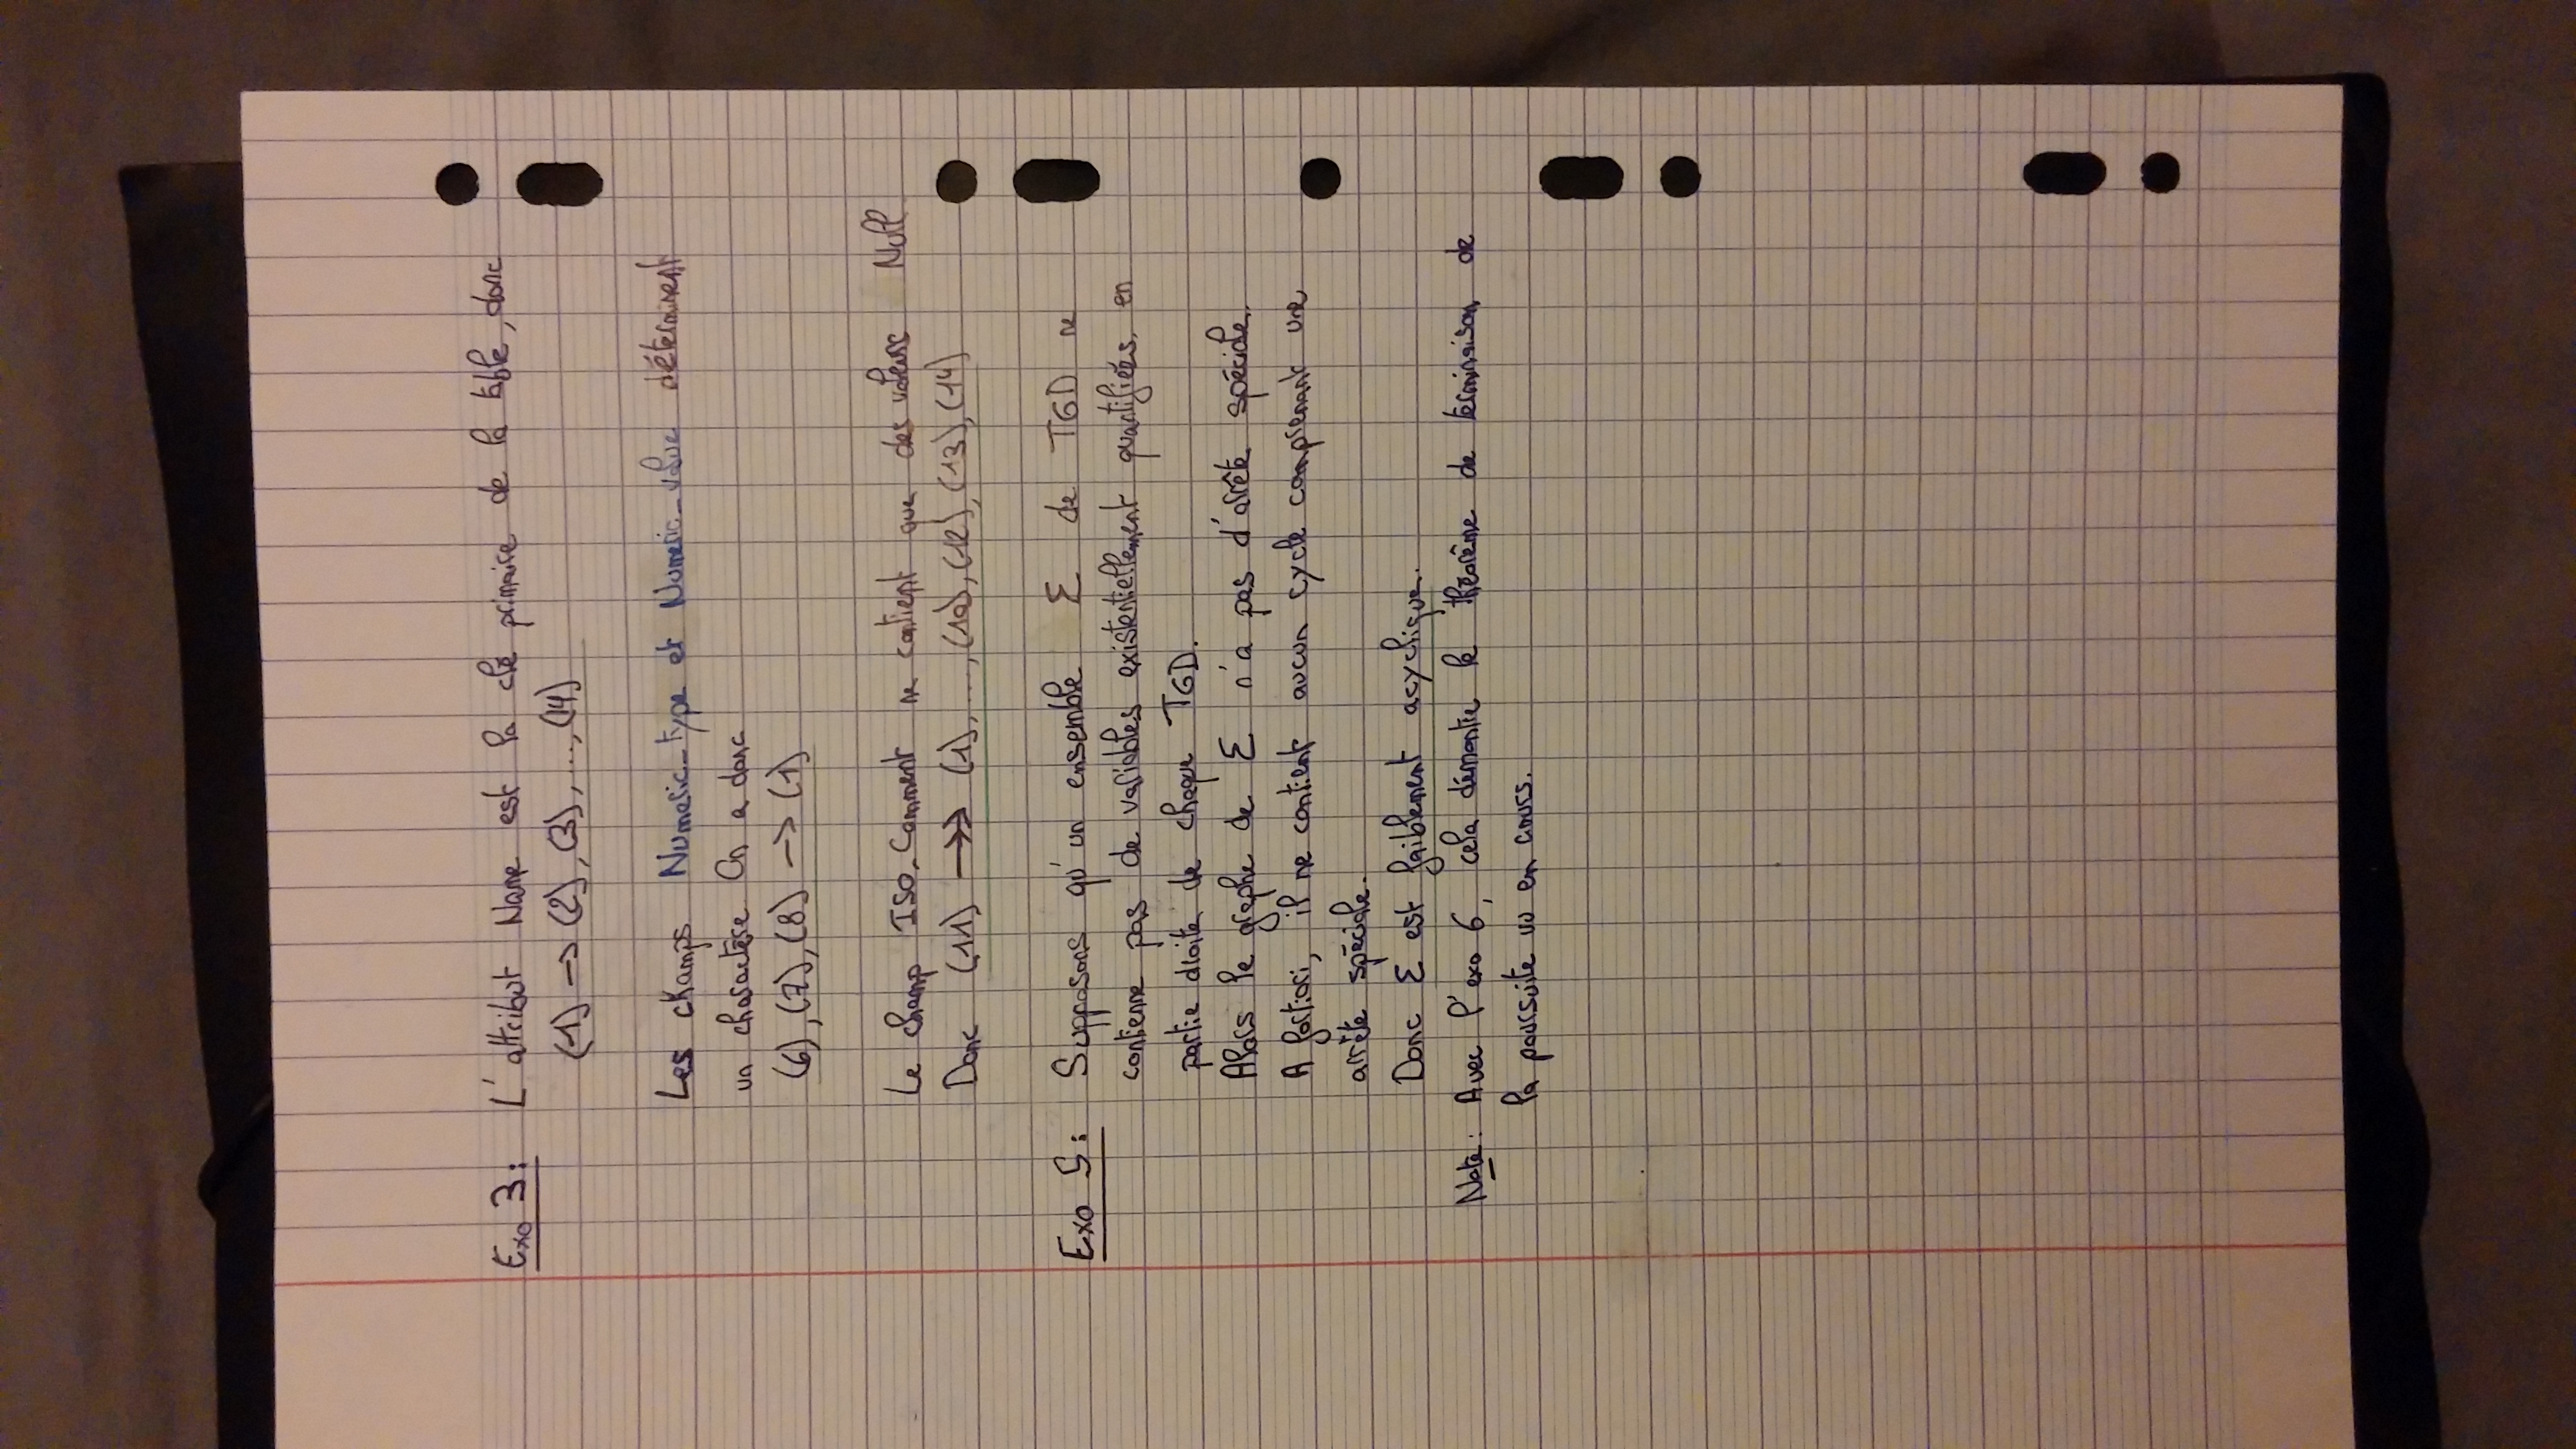 Exo 3: L'attribut Name est la clé primaire de la table, donc
(1) → (2), (3), ..., (14)
Les champs Numeric_type et Numeric_value déterminent
un charactère. On a donc
(6), (7), (8) → (1)
Le champ ISO_Comment ne contient que des valeurs Null
Donc (11) ↠ (1), ..., (10), (12), (13), (14)
Exo 5: Supposons qu'un ensemble Σ de TGD ne
contienne pas de variables existentiellement quantifiées en
partie droite de chaque TGD.
Alors le graphe de Σ n'a pas d'arrête spéciale.
A fortiori, il ne contient aucun cycle comprenant une
arrête spéciale.
Donc Σ est faiblement acyclique.
Note: Avec l'exo 6, cela démontre le théorème de terminaison de
la poursuite vu en cours.